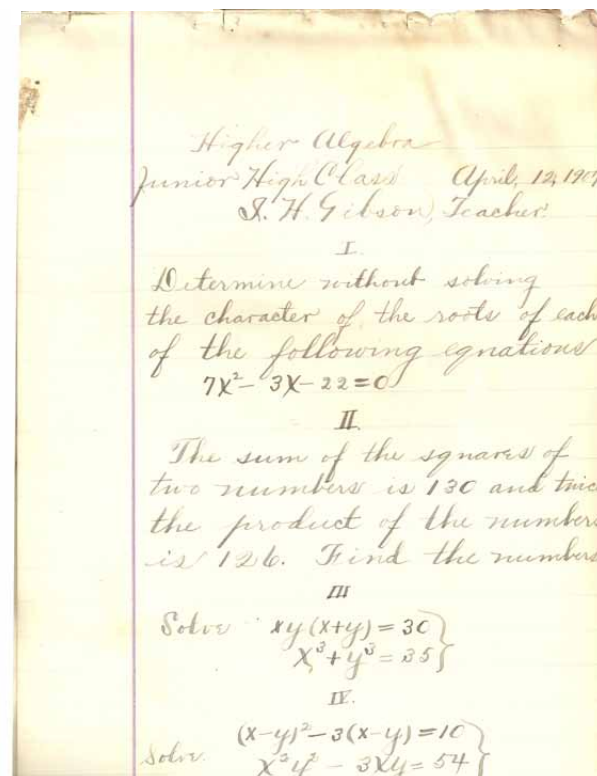 Higher Algebra
Junior High Class April, 12, 190
S. H. Gibson, Teacher.
I.
Determine without solving
the character of the roots of each
of the following equations
7x² - 3x - 22 = 0
II.
The sum of the squares of
two numbers is 130 and twic
the product of the numbers
is 126. Find the numbers
III
Solve xy(x+y) = 30 }
x³ + y³ = 35 }
IV.
(x-y)² - 3(x-y) = 10 }
Solve x²y² - 3xy = 54 }